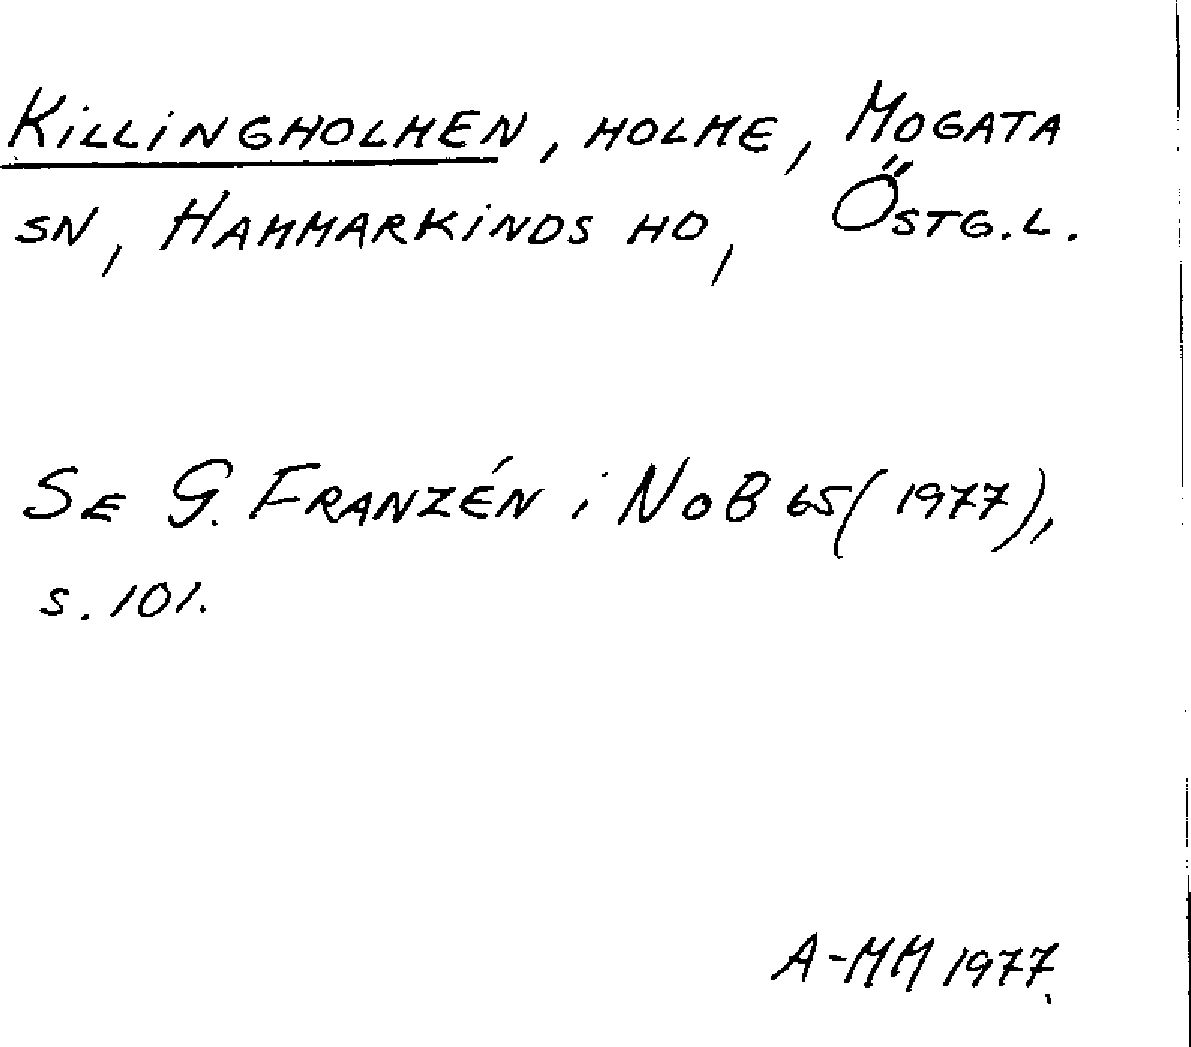 KILLINGHOLMEN, HOLME, MOGATA
SN, HAMMARKINDS HD, ÖSTG.L.
SE G. FRANZÉN i NoB 65 (1977),
s. 101.
A-MM 1977